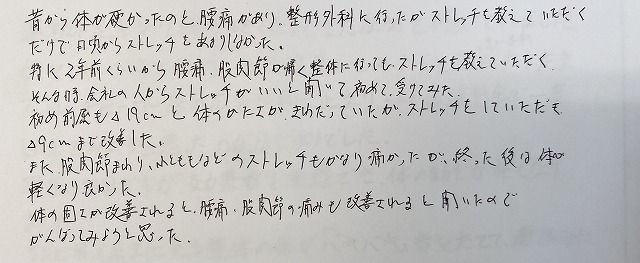 昔から体が硬かったのと、腰痛があり、整形外科に行ったがストレッチを教えていただく
だけで日頃からストレッチをあまりしなかった。
特に2年前くらいから腰痛、股肉節が痛く整体に行っても、ストレッチを教えていただく
そんな時、会社の人からストレッチがいいと聞いて初めて、受けてみた。
初め前屈も△19cmと体のかたさがきわだっていたが、ストレッチをしていただき
△9cmまで改善した。
また、股肉節まわり、ももなどのストレッチもかなり痛かったが、終った後は体が
軽くなり良かった。
体の固さが改善されると、腰痛、股肉節の痛みも改善されると聞いたので
がんばってみようと思った。